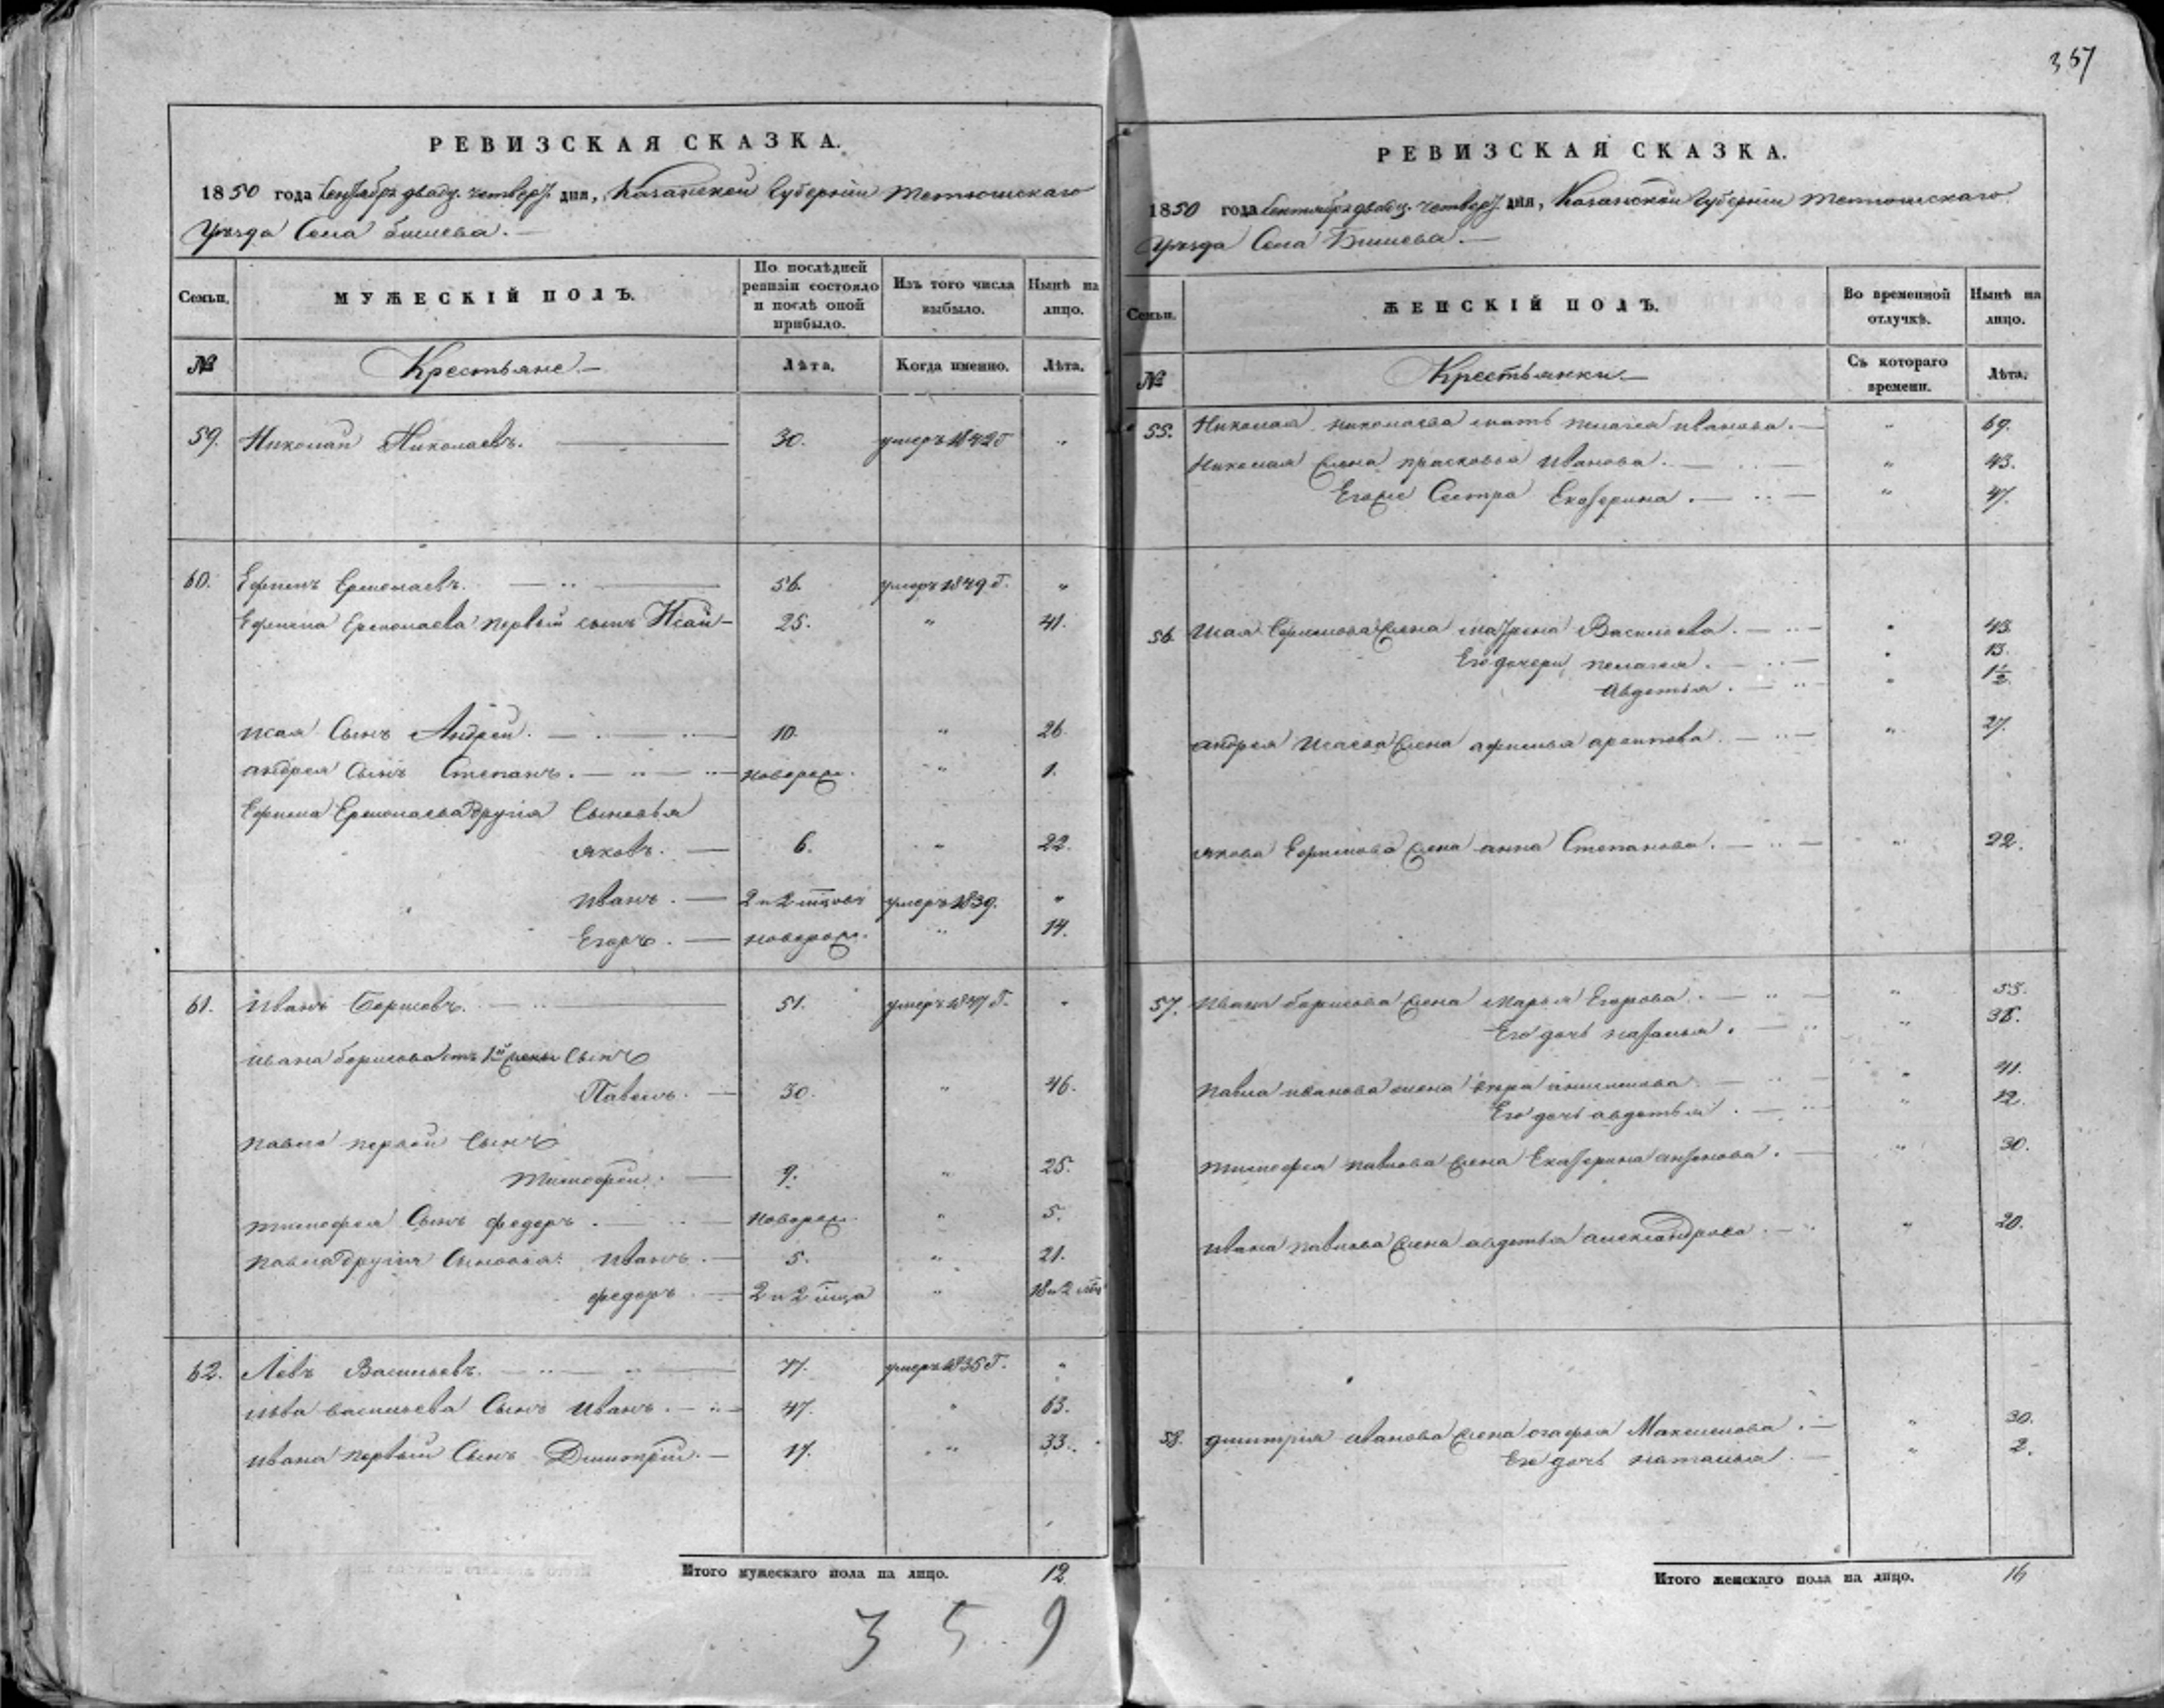 РЕВИЗСКАЯ СКАЗКА.
1850 года Сентября двадц. четверт. дня, Казанской Губернии Тетюшскаго
Уѣзда Села Бишева.
Семьи. МУЖЕСКІЙ ПОЛЪ. По послѣдней ревизіи состояло и послѣ оной прибыло. Изъ того числа выбыло. Нынѣ на лицо.
№ Крестьяне. Лѣта. Когда именно. Лѣта.
59. Николай Николаевъ. 30. умеръ 1842 г. "
60. Ефимъ Ермолаевъ. 56. умеръ 1849 г. "
Ефима Ермолаева первый сынъ Исай 25. " 41.
Исая Сынъ Андрей. 10. " 26.
Андрея Сынъ Степанъ. новорож. " 1.
Ефима Ермолаева другія Сыновья
Яковъ. 6. " 22.
Иванъ. 2 и 2 мцовъ умеръ 1839. "
Егоръ. новорож. " 14.
61. Иванъ Борисовъ. 51. умеръ 1847 г. "
Ивана Борисова отъ 1й жены Сынъ
Павелъ. 30. " 46.
Павла первой Сынъ
Тимофей. 9. " 25.
Тимофея Сынъ Федоръ. новорож. " 5.
Павла другія Сыновья: Иванъ. 5. " 21.
Федоръ. 2 и 2 мца " 18 и 2 мца
62. Левъ Васильевъ. 77. умеръ 1835 г. "
Льва Васильева Сынъ Иванъ. 47. " 63.
Ивана первый Сынъ Дмитрій. 17. " 33.
Итого мужескаго пола на лицо. 12.
3 5 9
357
РЕВИЗСКАЯ СКАЗКА.
1850 года Сентября двадц. четверт. дня, Казанской Губернии Тетюшскаго
Уѣзда Села Бишева.
Семьи. ЖЕНСКІЙ ПОЛЪ. Во временной отлучкѣ. Нынѣ на лицо.
№ Крестьянки. Съ котораго времени. Лѣта.
55. Николая Николаева мать Пелагея Иванова. " 69.
Николая жена Прасковья Иванова. " 43.
Егоже Сестра Екатерина. " 47.
56. Исая Ефимова жена Матрена Васильева. " 43.
Его дочери Пелагея. " 13.
Авдотья. " 1½.
Андрея Исаева жена Афимья Архипова. " 27.
Якова Ефимова жена Анна Степанова. " 22.
57. Ивана Борисова жена Марья Егорова. " 55.
Его дочь Наталья. "
Павла Иванова жена " 41.
Его дочь Авдотья. " 12.
Тимофея Павлова жена Екатерина Антонова. " 30.
Ивана Павлова жена Авдотья Александрова. " 20.
58. Дмитрія Иванова жена Огафья Максимова. " 30.
Его дочь Наталья. " 2.
Итого женскаго пола на лицо. 16